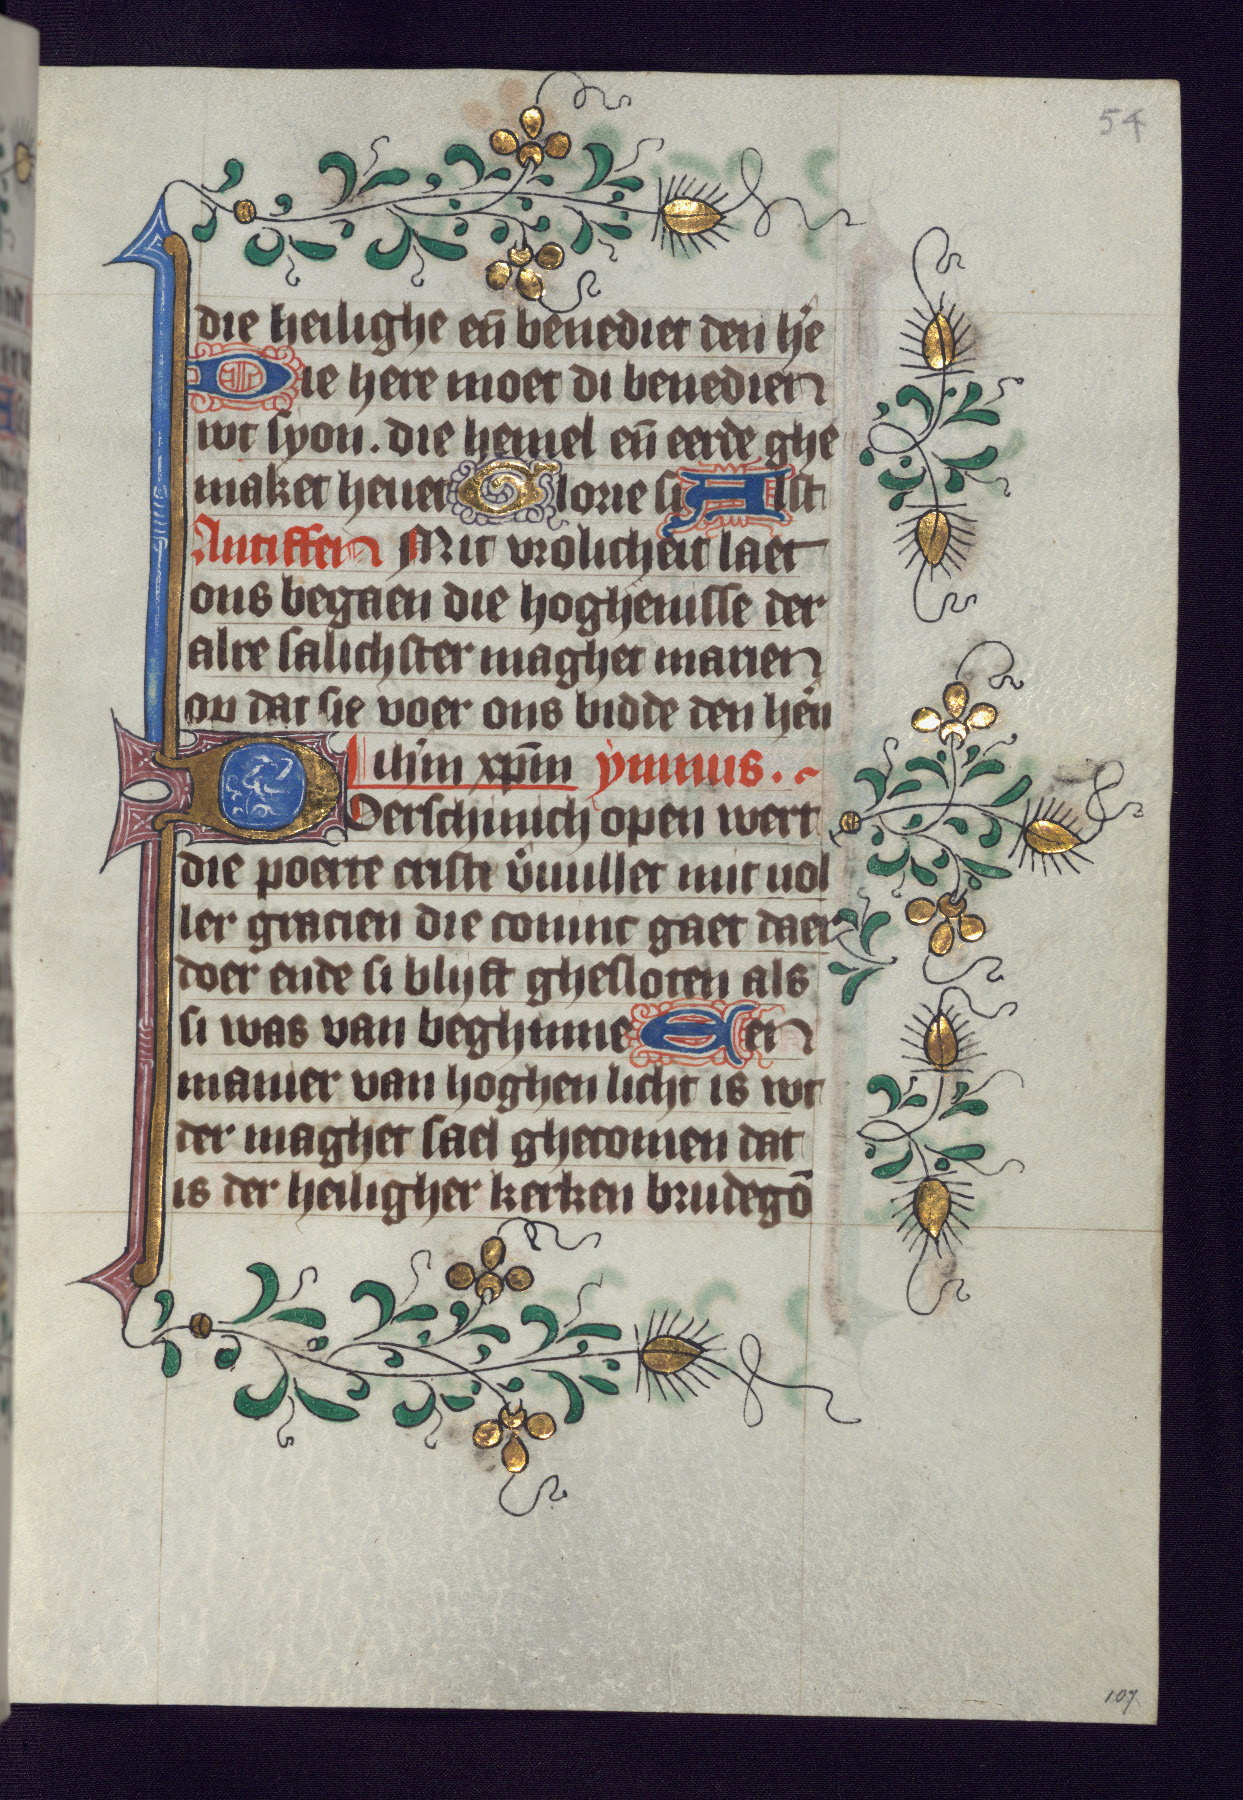 54
die heilighe en̄ benediet den he᷒
Die here moet di benedien
wt syon. die hemel en̄ eerde ghe
maket heuet Glorie si Alst
Antiffen Mit vrolicheit laet
ons begaen die hoghenisse der
alre salichster maghet marien
op dat sie voer ons bidde den hēn
ihm̄ xpm̄ ymnus.
Oerschinich open wert
die poerte cristi vͥuullet mit uol
ler gracien die coninc gaet daer
doer ende si blijft ghesloten als
si was van beghinne Een
manier van hoghen licht is wt
der maghet sael ghecomen dat
is der heiligher kerken brudegō
107